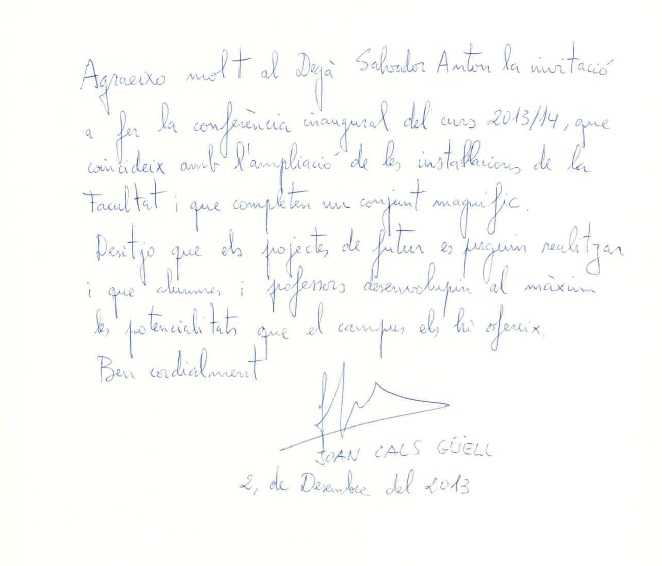 Agraeixo molt al Degà Salvador Anton la invitació
a fer la conferència inaugural del curs 2013/14, que
coincideix amb l'ampliació de les instal·lacions de la
Facultat i que completen un conjunt magnífic.
Desitjo que els projectes de futur es puguin realitzar
i que alumnes i professors desenvolupin al màxim
les potencialitats que el campus els hi ofereix.
Ben cordialment
JOAN CALS GÜELL
2, de Desembre del 2013